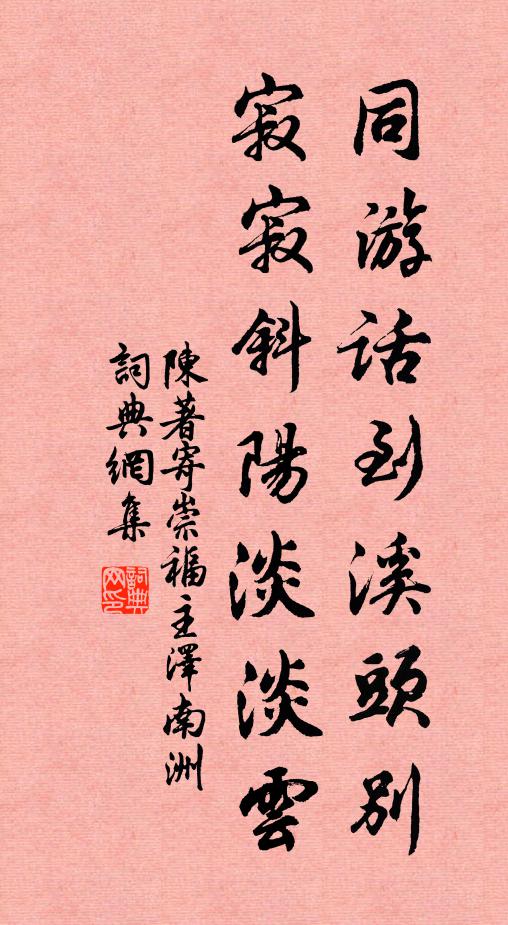 同游话到溪頭別
寂寂斜陽淡淡雲
陳著寄崇福主澤南洲
詞典網集
詞典网印